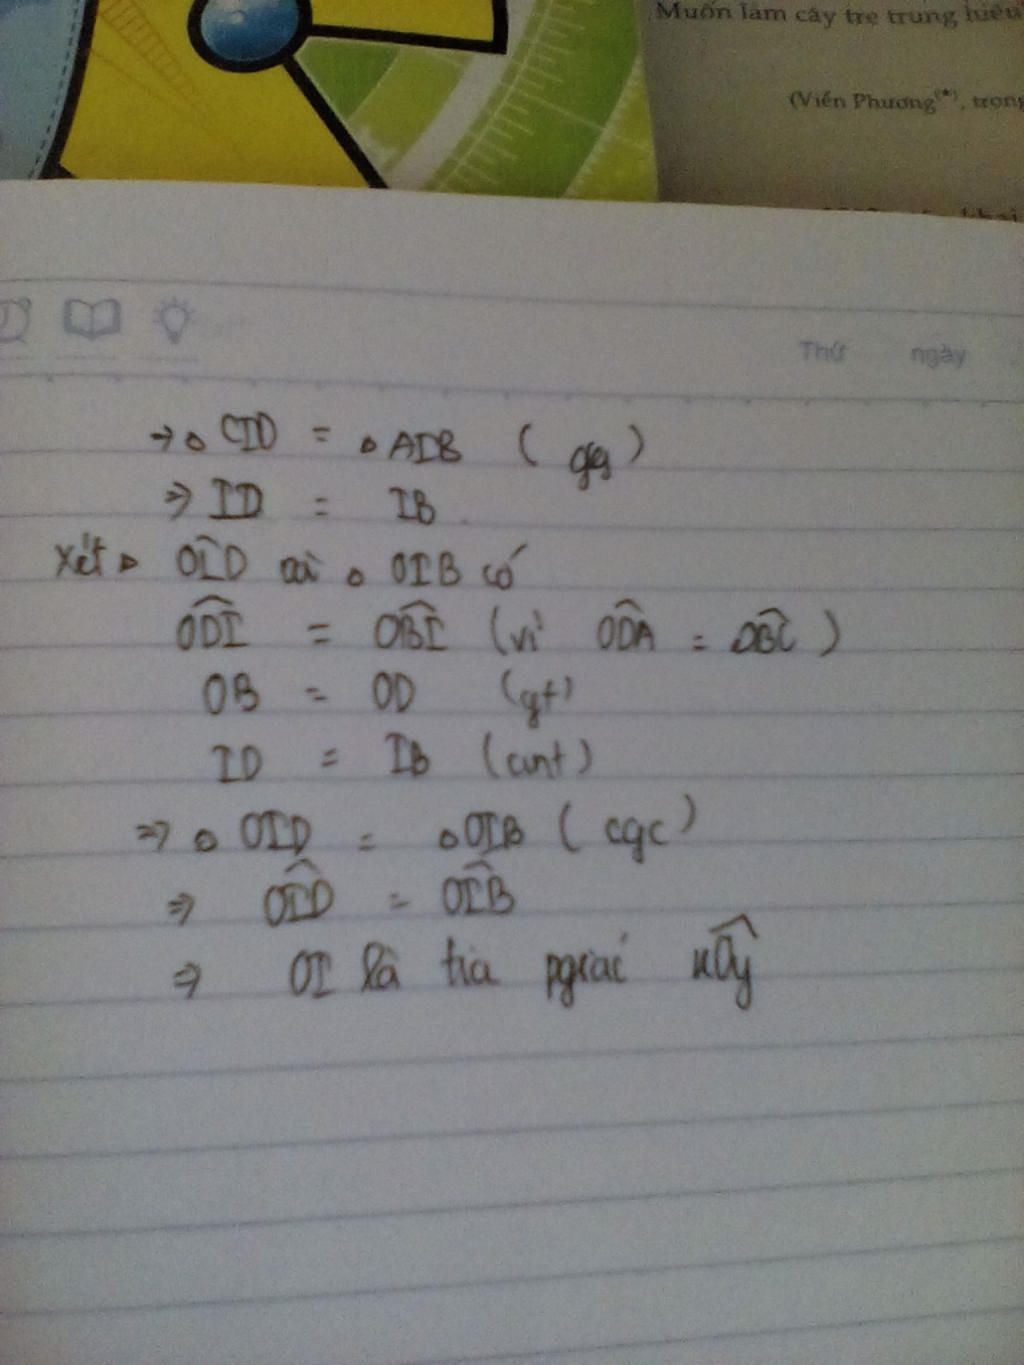 Muốn làm cây tre trung hiếu
(Viễn Phương(*), trong
Thứ ngày
→ △ CID = △ AIB ( gcg )
⇒ ID = IB .
Xét △ OID và △ OIB có
ODI = OBI (vì ODA = OBC )
OB = OD (gt)
ID = IB (cmt)
⇒ △ OID = △ OIB ( cgc )
⇒ OID = OIB
⇒ OI là tia pgiác xOy